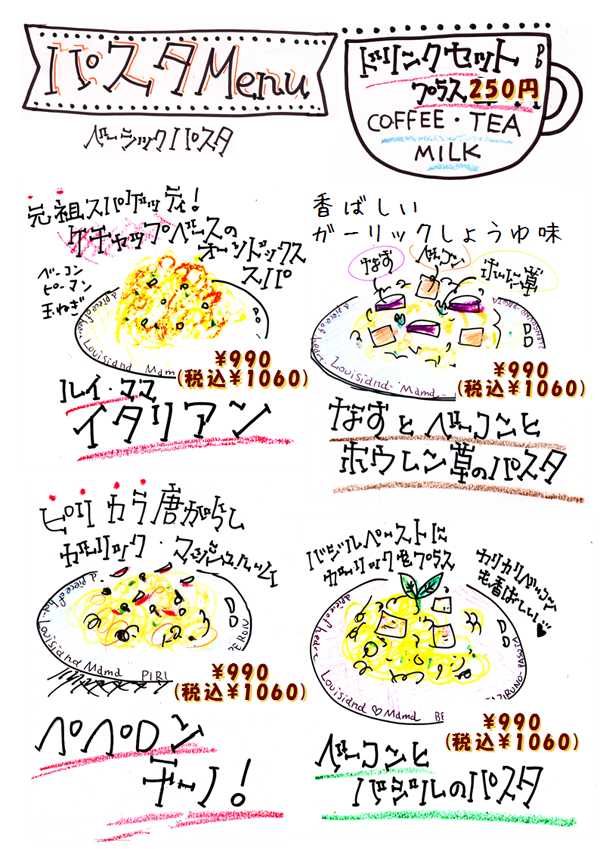 パスタMenu
ベーシックパスタ
ドリンクセット
プラス250円
COFFEE・TEA
MILK
元祖スパゲッティ!
ケチャップベースの
オーソドックス
スパ
ベーコン
ピーマン
玉ねぎ
Louisiana Mama
¥990
(税込¥1060)
ルイ・ママ
イタリアン
香ばしい
ガーリックしょうゆ味
なす
ベーコン
ホウレン草
Louisiana Mama
¥990
(税込¥1060)
なすとベーコンと
ホウレン草のパスタ
ピリカラ唐がらし
ガーリック・マッシュルーム
a piece of
Louisiana Mama
PIRI
¥990
(税込¥1060)
ペペロン
チーノ!
バジルペーストに
ガーリックをプラス
カリカリベーコン
も香ばしい
Louisiana Mama
¥990
(税込¥1060)
ベーコンと
バジルのパスタ